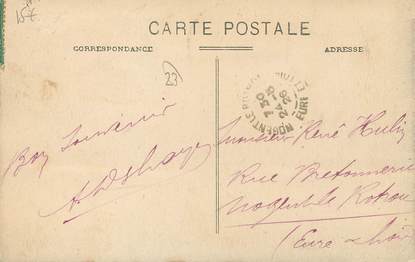 15€
CARTE POSTALE
CORRESPONDANCE
ADRESSE
23
NOGENT-LE-ROTROU
EURE-ET-LOIR
7 30
24 - 5
26
Bon Souvenir
Monsieur René Hulin
Rue Bretonnerie
Nogent le Rotrou
(Eure & Loir